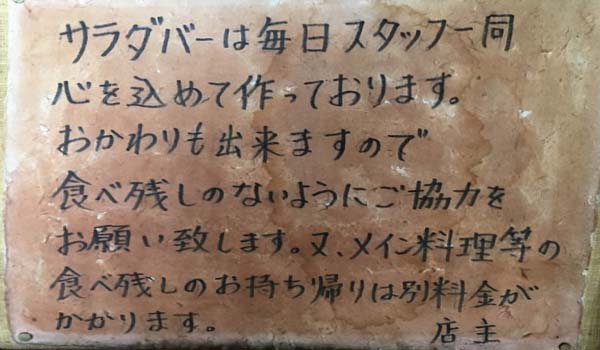 サラダバーは毎日スタッフ一同
心を込めて作っております。
おかわりも出来ますので
食べ残しのないようにご協力を
お願い致します。又、メイン料理等の
食べ残しのお持ち帰りは別料金が
かかります。 店主